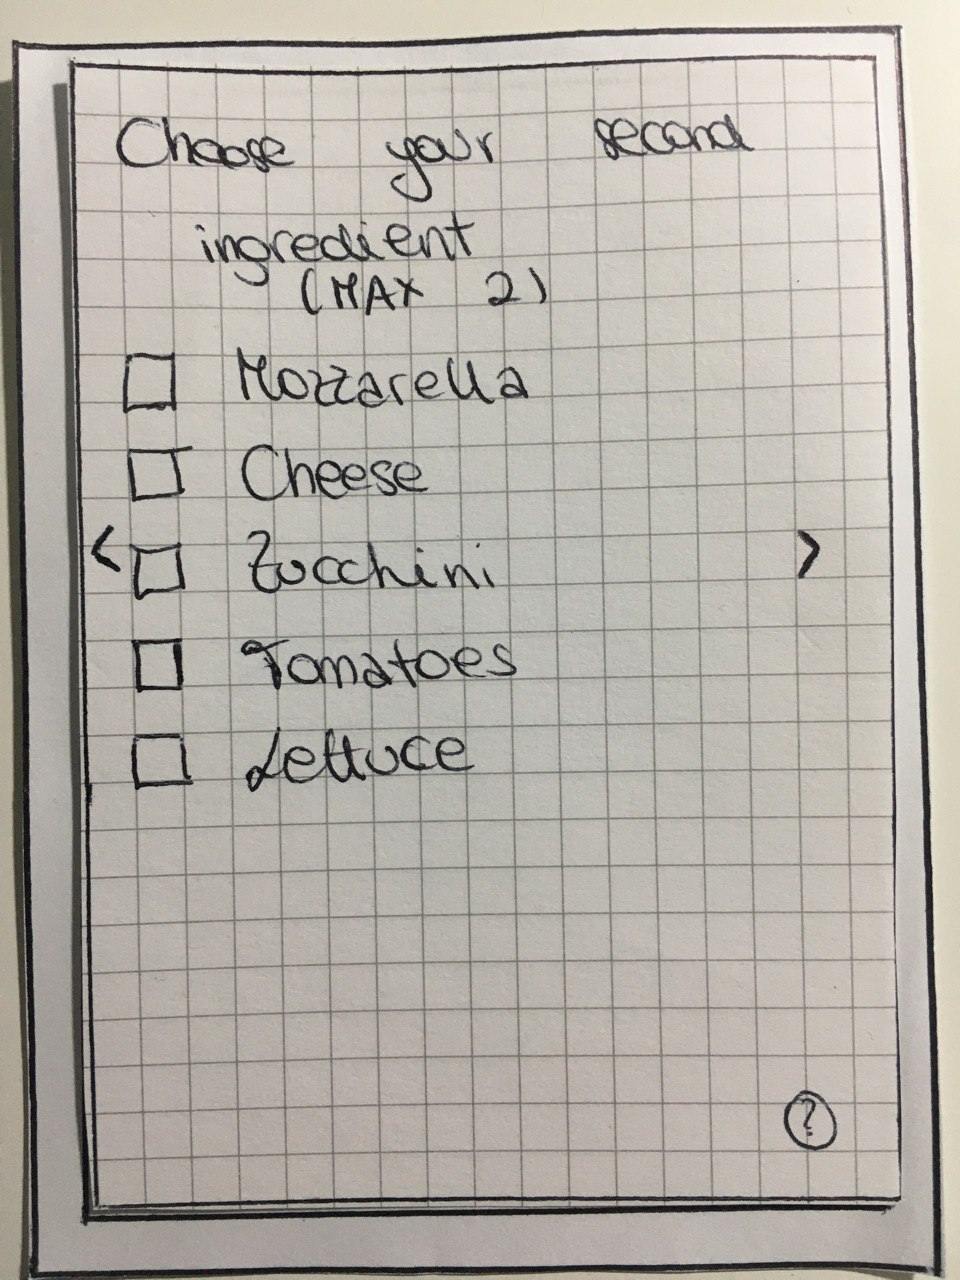 Choose your second
ingredient
(MAX 2)
Mozzarella
Cheese
< Zucchini >
Tomatoes
Lettuce
?